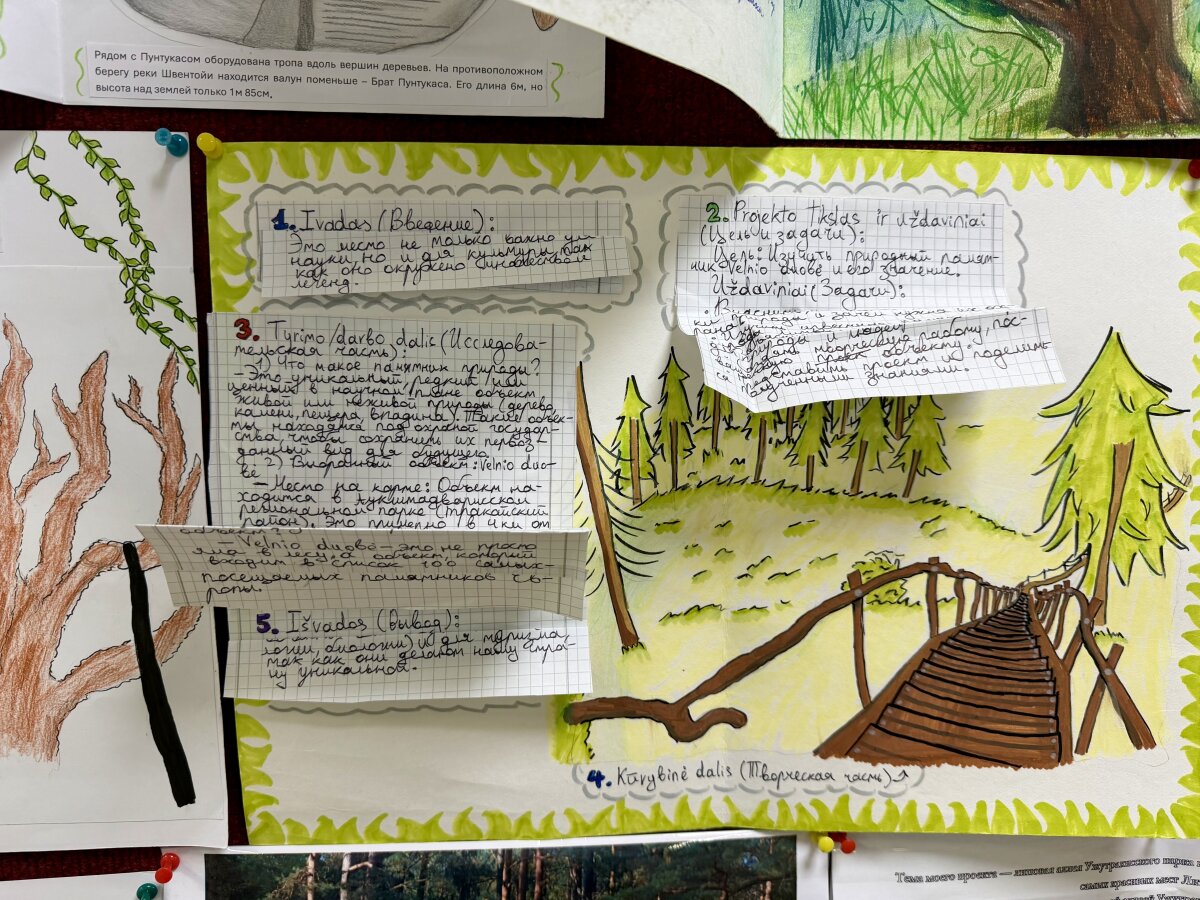 Рядом с Пунтукасом оборудована тропа вдоль вершин деревьев. На противоположном
берегу реки Швентойи находится валун поменьше – Брат Пунтукаса. Его длина 6м, но
высота над землей только 1м 85см.
1. Įvadas (Введение):
Это место не только важно для
науки, но и для культуры, так
как оно окружено множеством
легенд.
2. Projekto Tikslas ir uždaviniai
(Цель и задачи):
Цель: Изучить природный памят-
ник Velnio duobė и его значение.
Uždaviniai (Задачи):
природы и
творческую работу, пос-
объекту.
проект и поделить-
ся полученными знаниями.
3. Tyrimo/darbo dalis (Исследова-
тельская часть):
1) Что такое памятник природы?
- Это уникальный, редкий или
ценный в научном плане объект
живой или неживой природы (дерево,
камень, пещера, впадина). Такие объек-
ты находятся под охраной государ-
ства, чтобы сохранить их перво-
данный вид для будущего.
2) Выбранный объект: Velnio duo-
bė
- Место на карте: Объект на-
ходится в Аукштадварисском
региональном парке (Тракайский
район). Это примерно в 4 км от
- Velnio duobė - это не просто
яма в лесу, а объект, который
входит в список 100 самых
посещаемых памятников
5. Išvados (Вывод):
логии, биологии) и для туризма,
так как они делают нашу стра-
ну уникальной.
4. Kūrybinė dalis (Творческая часть)
Тема моего проекта — липовая аллея Ужутракисского парка
самых красивых мест